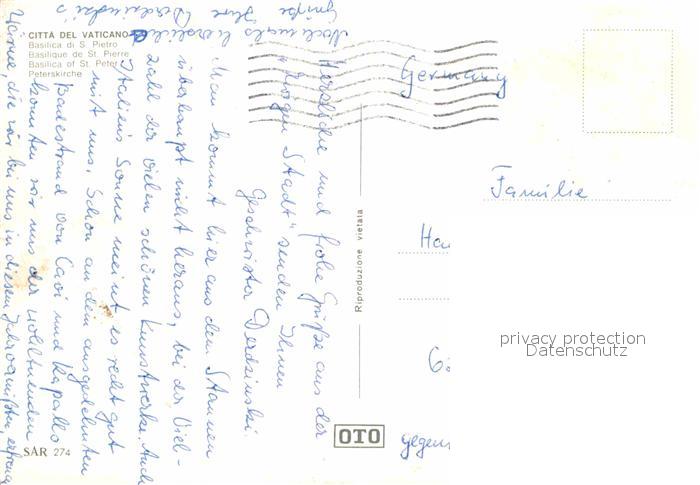 CITTÀ DEL VATICANO
Basilica di S. Pietro
Basilique de St. Pierre
Basilica of St. Peter
Peterskirche
Herzliche und frohe Grüße aus der
"Ewigen Stadt" senden Ihnen
Geschwister Derdzinski.
Man kommt hier aus dem Staunen
überhaupt nicht heraus, bei der Viel-
zahl der vielen schönen Kunstwerke. Auch
Italiens Sonne meint es recht gut
mit uns. Schon an dem ausgedehnten
Badestrand von Cavi und Rapallo
konnten wir uns der wohltuenden
Wärme, die wir bei uns in diesem
Nochmals herzliche
Grüße Ihre Derdzinski's
Germany
Familie
Riproduzione vietata
gegen
privacy protection
Datenschutz
OTO
SAR 274